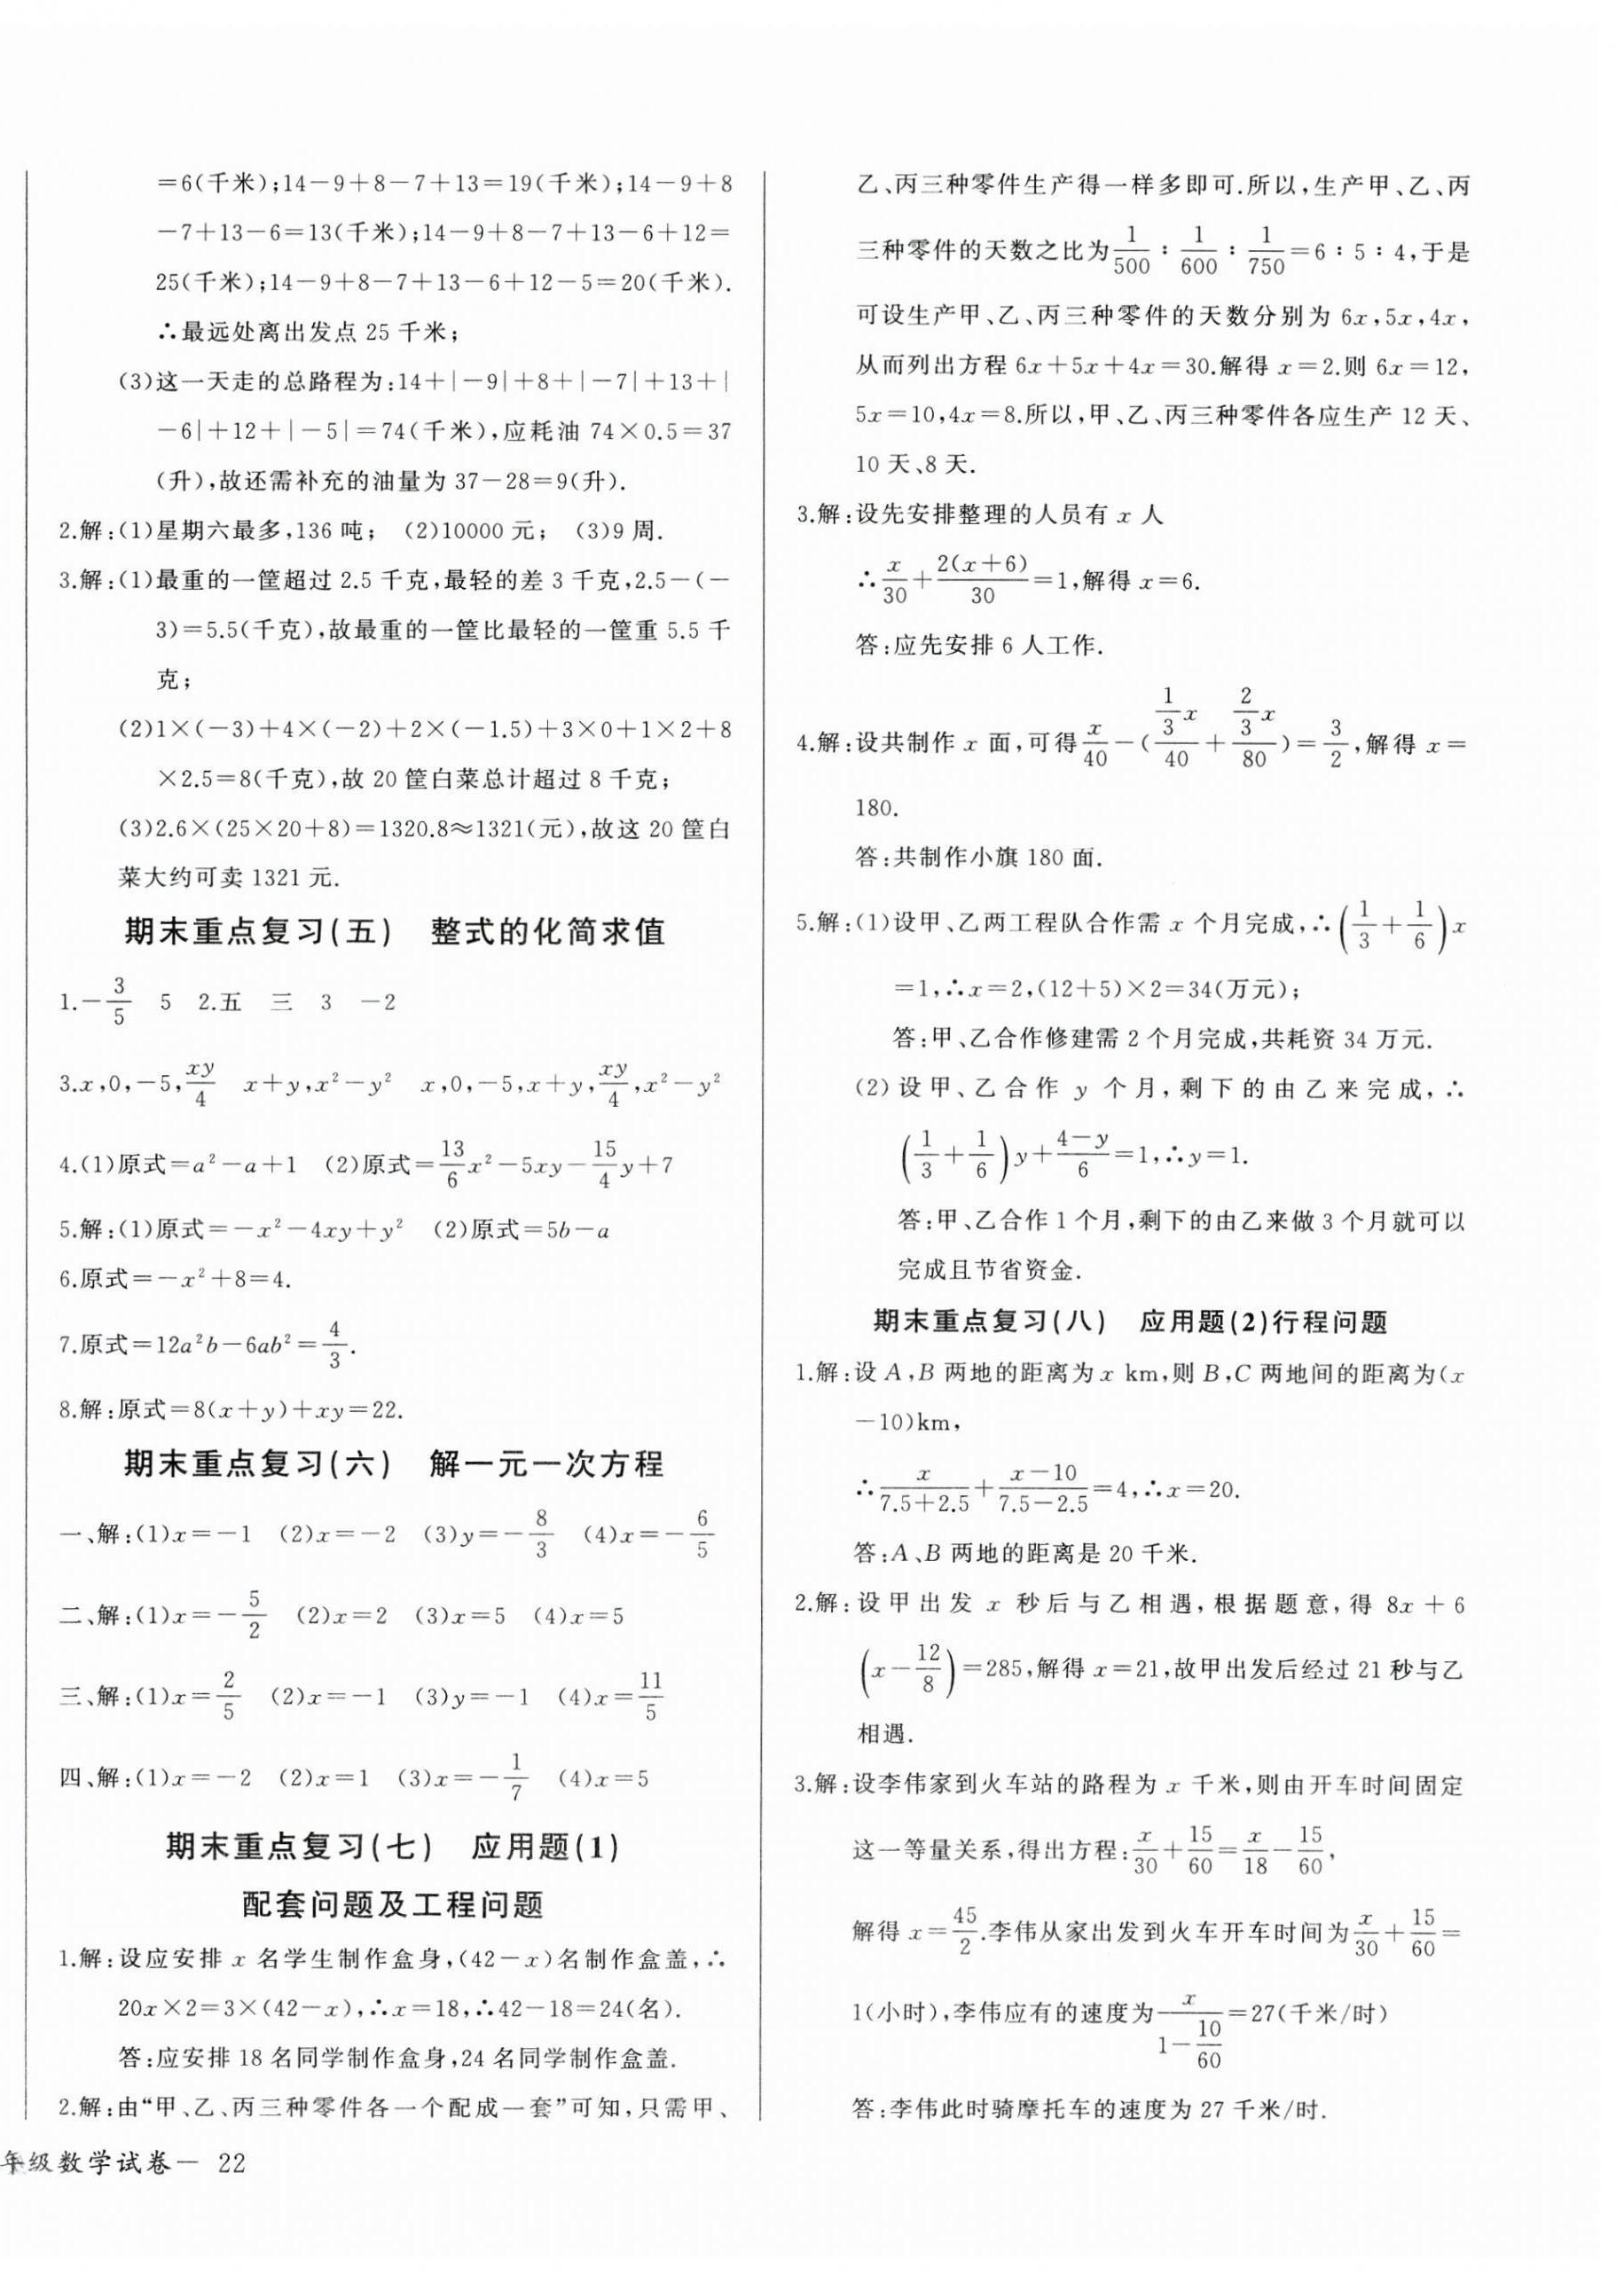 =6(千米);14-9+8-7+13=19(千米);14-9+8
-7+13-6=13(千米);14-9+8-7+13-6+12=
25(千米);14-9+8-7+13-6+12-5=20(千米).
∴最远处离出发点 25 千米;
(3)这一天走的总路程为:14+|-9|+8+|-7|+13+|
-6|+12+|-5|=74(千米),应耗油 74×0.5=37
(升),故还需补充的油量为 37-28=9(升).
2.解:(1)星期六最多,136 吨; (2)10000 元; (3)9 周.
3.解:(1)最重的一筐超过 2.5 千克,最轻的差 3 千克,2.5-(-
3)=5.5(千克),故最重的一筐比最轻的一筐重 5.5 千
克;
(2)1×(-3)+4×(-2)+2×(-1.5)+3×0+1×2+8
×2.5=8(千克),故 20 筐白菜总计超过 8 千克;
(3)2.6×(25×20+8)=1320.8≈1321(元),故这 20 筐白
菜大约可卖 1321 元.
期末重点复习(五) 整式的化简求值
1.-3/5 5 2.五 三 3 -2
3.x,0,-5,xy/4 x+y,x²-y² x,0,-5,x+y,xy/4,x²-y²
4.(1)原式=a²-a+1 (2)原式=13/6x²-5xy-15/4y+7
5.解:(1)原式=-x²-4xy+y² (2)原式=5b-a
6.原式=-x²+8=4.
7.原式=12a²b-6ab²=4/3.
8.解:原式=8(x+y)+xy=22.
期末重点复习(六) 解一元一次方程
一、解:(1)x=-1 (2)x=-2 (3)y=-8/3 (4)x=-6/5
二、解:(1)x=-5/2 (2)x=2 (3)x=5 (4)x=5
三、解:(1)x=2/5 (2)x=-1 (3)y=-1 (4)x=11/5
四、解:(1)x=-2 (2)x=1 (3)x=-1/7 (4)x=5
期末重点复习(七) 应用题(1)
配套问题及工程问题
1.解:设应安排 x 名学生制作盒身,(42-x)名制作盒盖,∴
20x×2=3×(42-x),∴x=18,∴42-18=24(名).
答:应安排 18 名同学制作盒身,24 名同学制作盒盖.
2.解:由“甲、乙、丙三种零件各一个配成一套”可知,只需甲、
年级数学试卷— 22
乙、丙三种零件生产得一样多即可.所以,生产甲、乙、丙
三种零件的天数之比为1/500:1/600:1/750=6:5:4,于是
可设生产甲、乙、丙三种零件的天数分别为 6x,5x,4x,
从而列出方程 6x+5x+4x=30.解得 x=2.则 6x=12,
5x=10,4x=8.所以,甲、乙、丙三种零件各应生产 12 天、
10 天、8 天.
3.解:设先安排整理的人员有 x 人
∴x/30+2(x+6)/30=1,解得 x=6.
答:应先安排 6 人工作.
4.解:设共制作 x 面,可得x/40-(1/3x/40+2/3x/80)=3/2,解得 x=
180.
答:共制作小旗 180 面.
5.解:(1)设甲、乙两工程队合作需 x 个月完成,∴(1/3+1/6)x
=1,∴x=2,(12+5)×2=34(万元);
答:甲、乙合作修建需 2 个月完成,共耗资 34 万元.
(2)设甲、乙合作 y 个月,剩下的由乙来完成,∴
(1/3+1/6)y+4-y/6=1,∴y=1.
答:甲、乙合作 1 个月,剩下的由乙来做 3 个月就可以
完成且节省资金.
期末重点复习(八) 应用题(2)行程问题
1.解:设 A,B 两地的距离为 x km,则 B,C 两地间的距离为(x
-10)km,
∴x/7.5+2.5+x-10/7.5-2.5=4,∴x=20.
答:A、B 两地的距离是 20 千米.
2.解:设甲出发 x 秒后与乙相遇,根据题意,得 8x+6
(x-12/8)=285,解得 x=21,故甲出发后经过 21 秒与乙
相遇.
3.解:设李伟家到火车站的路程为 x 千米,则由开车时间固定
这一等量关系,得出方程:x/30+15/60=x/18-15/60,
解得 x=45/2.李伟从家出发到火车开车时间为x/30+15/60=
1(小时),李伟应有的速度为x/1-10/60=27(千米/时)
答:李伟此时骑摩托车的速度为 27 千米/时.